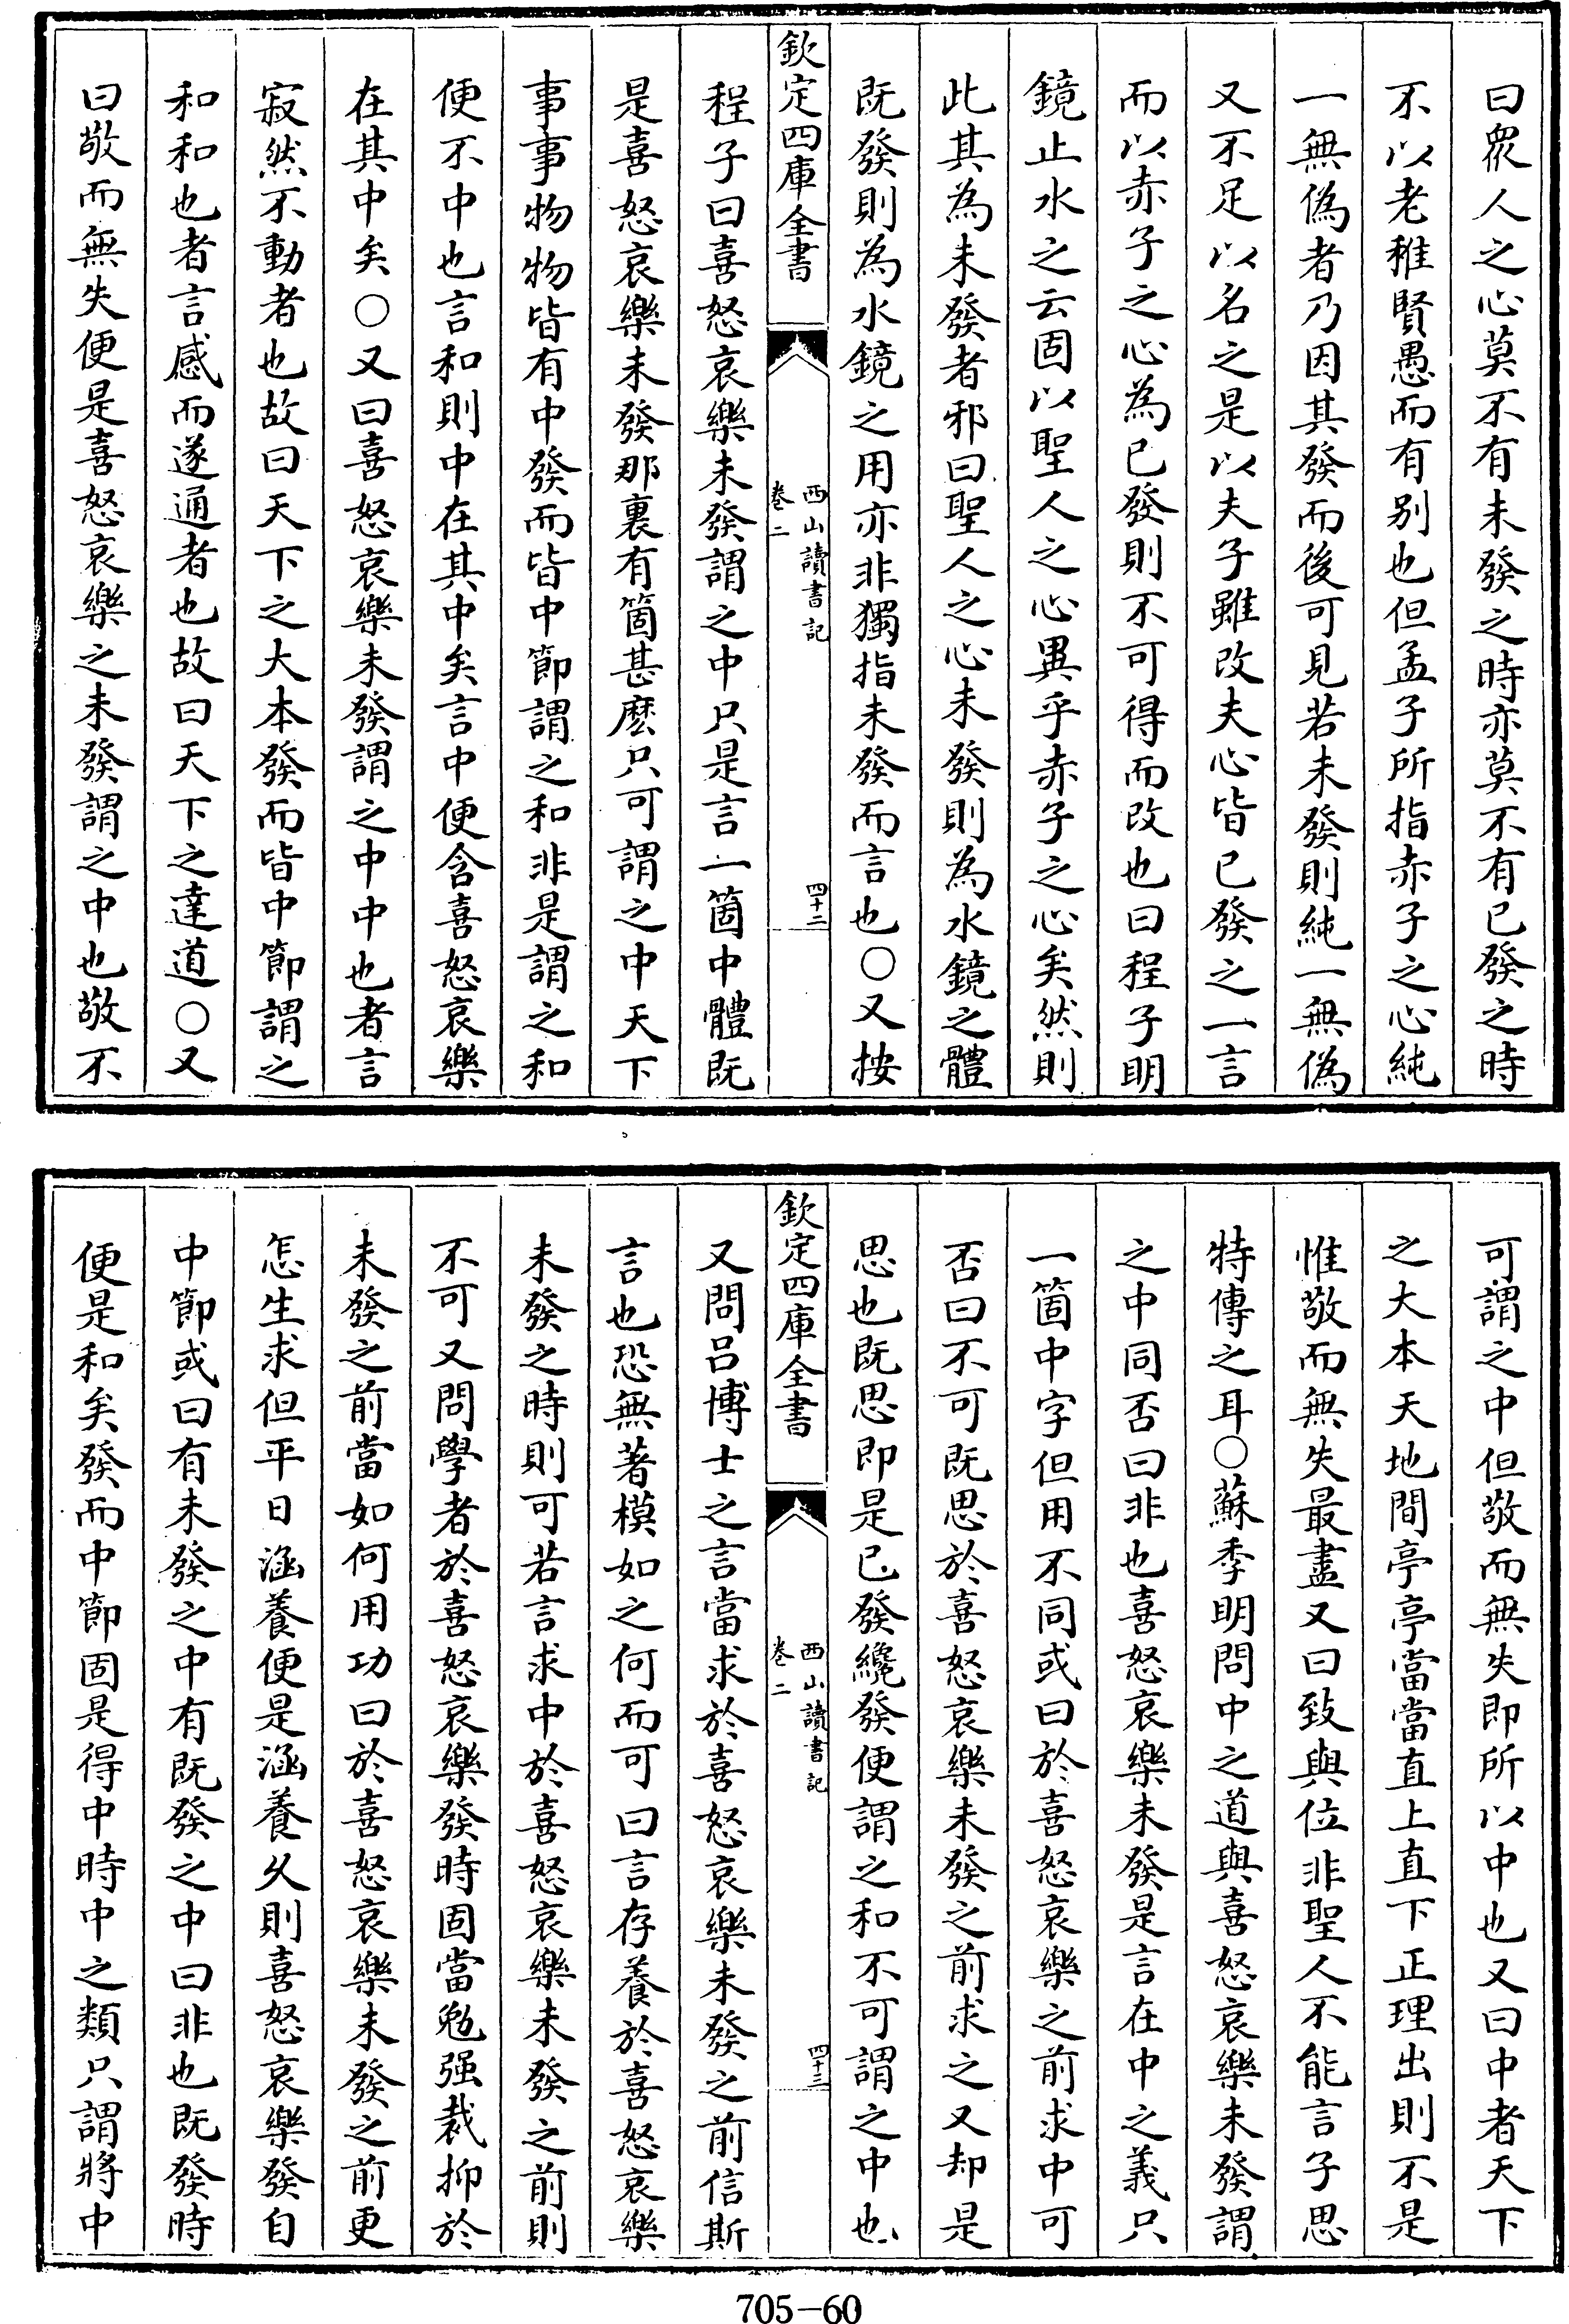 曰衆人之心莫不有未發之時亦莫不有已發之時
不以老稚賢愚而有别也但孟子所指赤子之心純
一無偽者乃因其發而後可見若未發則純一無偽
又不足以名之是以夫子雖改夫心皆已發之一言
而以赤子之心為已發則不可得而改也曰程子明
鏡止水之云固以聖人之心異乎赤子之心矣然則
此其為未發者邪曰聖人之心未發則為水鏡之體
既發則為水鏡之用亦非獨指未發而言也○又按
欽定四庫全書
西山讀書記
卷二
四十二
程子曰喜怒哀樂未發謂之中只是言一箇中體既
是喜怒哀樂未發那裏有箇甚麽只可謂之中天下
事事物物皆有中發而皆中節謂之和非是謂之和
便不中也言和則中在其中矣言中便含喜怒哀樂
在其中矣○又曰喜怒哀樂未發謂之中中也者言
寂然不動者也故曰天下之大本發而皆中節謂之
和和也者言感而遂通者也故曰天下之達道○又
曰敬而無失便是喜怒哀樂之未發謂之中也敬不
可謂之中但敬而無失即所以中也又曰中者天下
之大本天地間亭亭當當直上直下正理出則不是
惟敬而無失最盡又曰致與位非聖人不能言子思
特傳之耳○蘇季明問中之道與喜怒哀樂未發謂
之中同否曰非也喜怒哀樂未發是言在中之義只
一箇中字但用不同或曰於喜怒哀樂之前求中可
否曰不可既思於喜怒哀樂未發之前求之又却是
思也既思即是已發纔發便謂之和不可謂之中也
欽定四庫全書
西山讀書記
卷二
四十三
又問呂博士之言當求於喜怒哀樂未發之前信斯
言也恐無著模如之何而可曰言存養於喜怒哀樂
未發之時則可若言求中於喜怒哀樂未發之前則
不可又問學者於喜怒哀樂發時固當勉强裁抑於
未發之前當如何用功曰於喜怒哀樂未發之前更
怎生求但平日涵養便是涵養久則喜怒哀樂發自
中節或曰有未發之中有既發之中曰非也既發時
便是和矣發而中節固是得中時中之類只謂將中
705-60